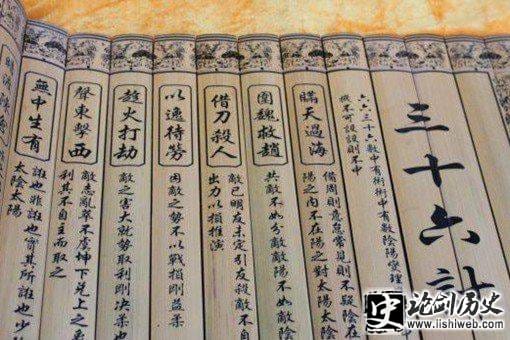 三十六計
六六三十六數中有術術中有數陰陽燮理
機不可設設則不中
瞞天過海
備周則意怠常見則不疑陰在
陽之內不在陽之對太陽太陰
圍魏救趙
共敵不如分敵敵陽不如敵陰
借刀殺人
敵已明友未定引友殺敵不自
出力以損推演
以逸待勞
困敵之勢不以戰損剛益柔
趁火打劫
敵之害大就勢取利剛決柔也
聲東擊西
敵志亂萃不虞坤下兌上之
利其不自主而取之
無中生有
誑也非誑也實其所誑也少
太陰太陽
史 论剑历史
www.lishiweb.com